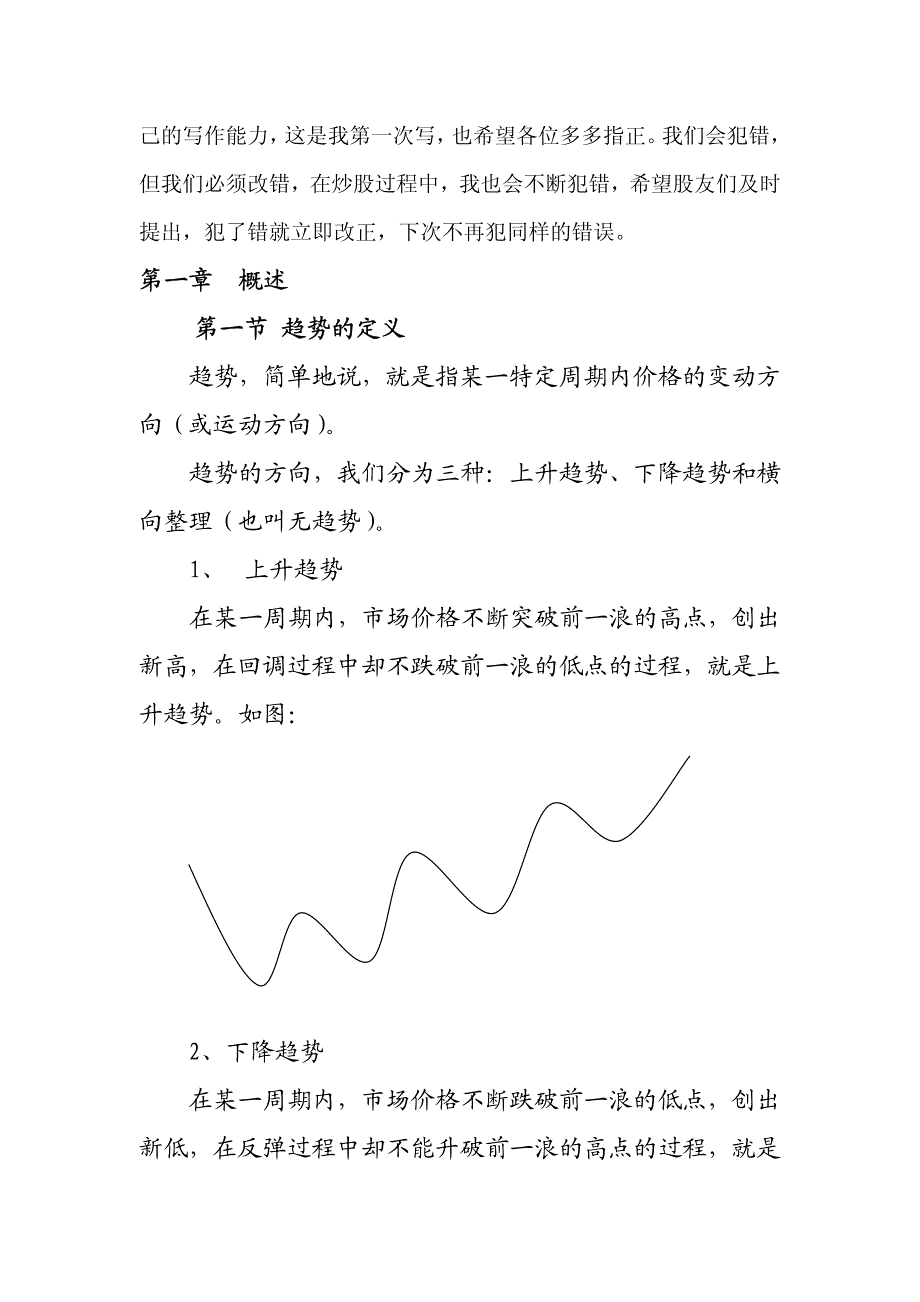 己的写作能力，这是我第一次写，也希望各位多多指正。我们会犯错，
但我们必须改错，在炒股过程中，我也会不断犯错，希望股友们及时
提出，犯了错就立即改正，下次不再犯同样的错误。
第一章　概述
第一节 趋势的定义
趋势，简单地说，就是指某一特定周期内价格的变动方
向（或运动方向）。
趋势的方向，我们分为三种：上升趋势、下降趋势和横
向整理（也叫无趋势）。
1、　上升趋势
在某一周期内，市场价格不断突破前一浪的高点，创出
新高，在回调过程中却不跌破前一浪的低点的过程，就是上
升趋势。如图：
2、下降趋势
在某一周期内，市场价格不断跌破前一浪的低点，创出
新低，在反弹过程中却不能升破前一浪的高点的过程，就是